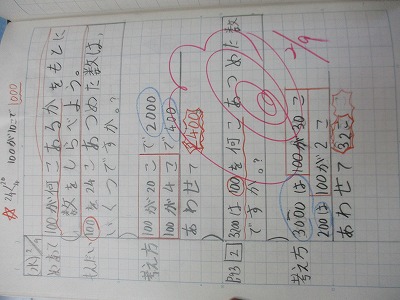 100が10こで1000
めあて 100が何こあるかをもとに
数をしらべよう。
100を24こあつめた数は、
いくつですか。?
考え方 100が20こで2000
100が4こで400
あわせて2400
P93 2 3200は100を何こあつめた数
ですか。?
2/9
考え方 3000は100が30こ
200は100が2こ
あわせて32こ